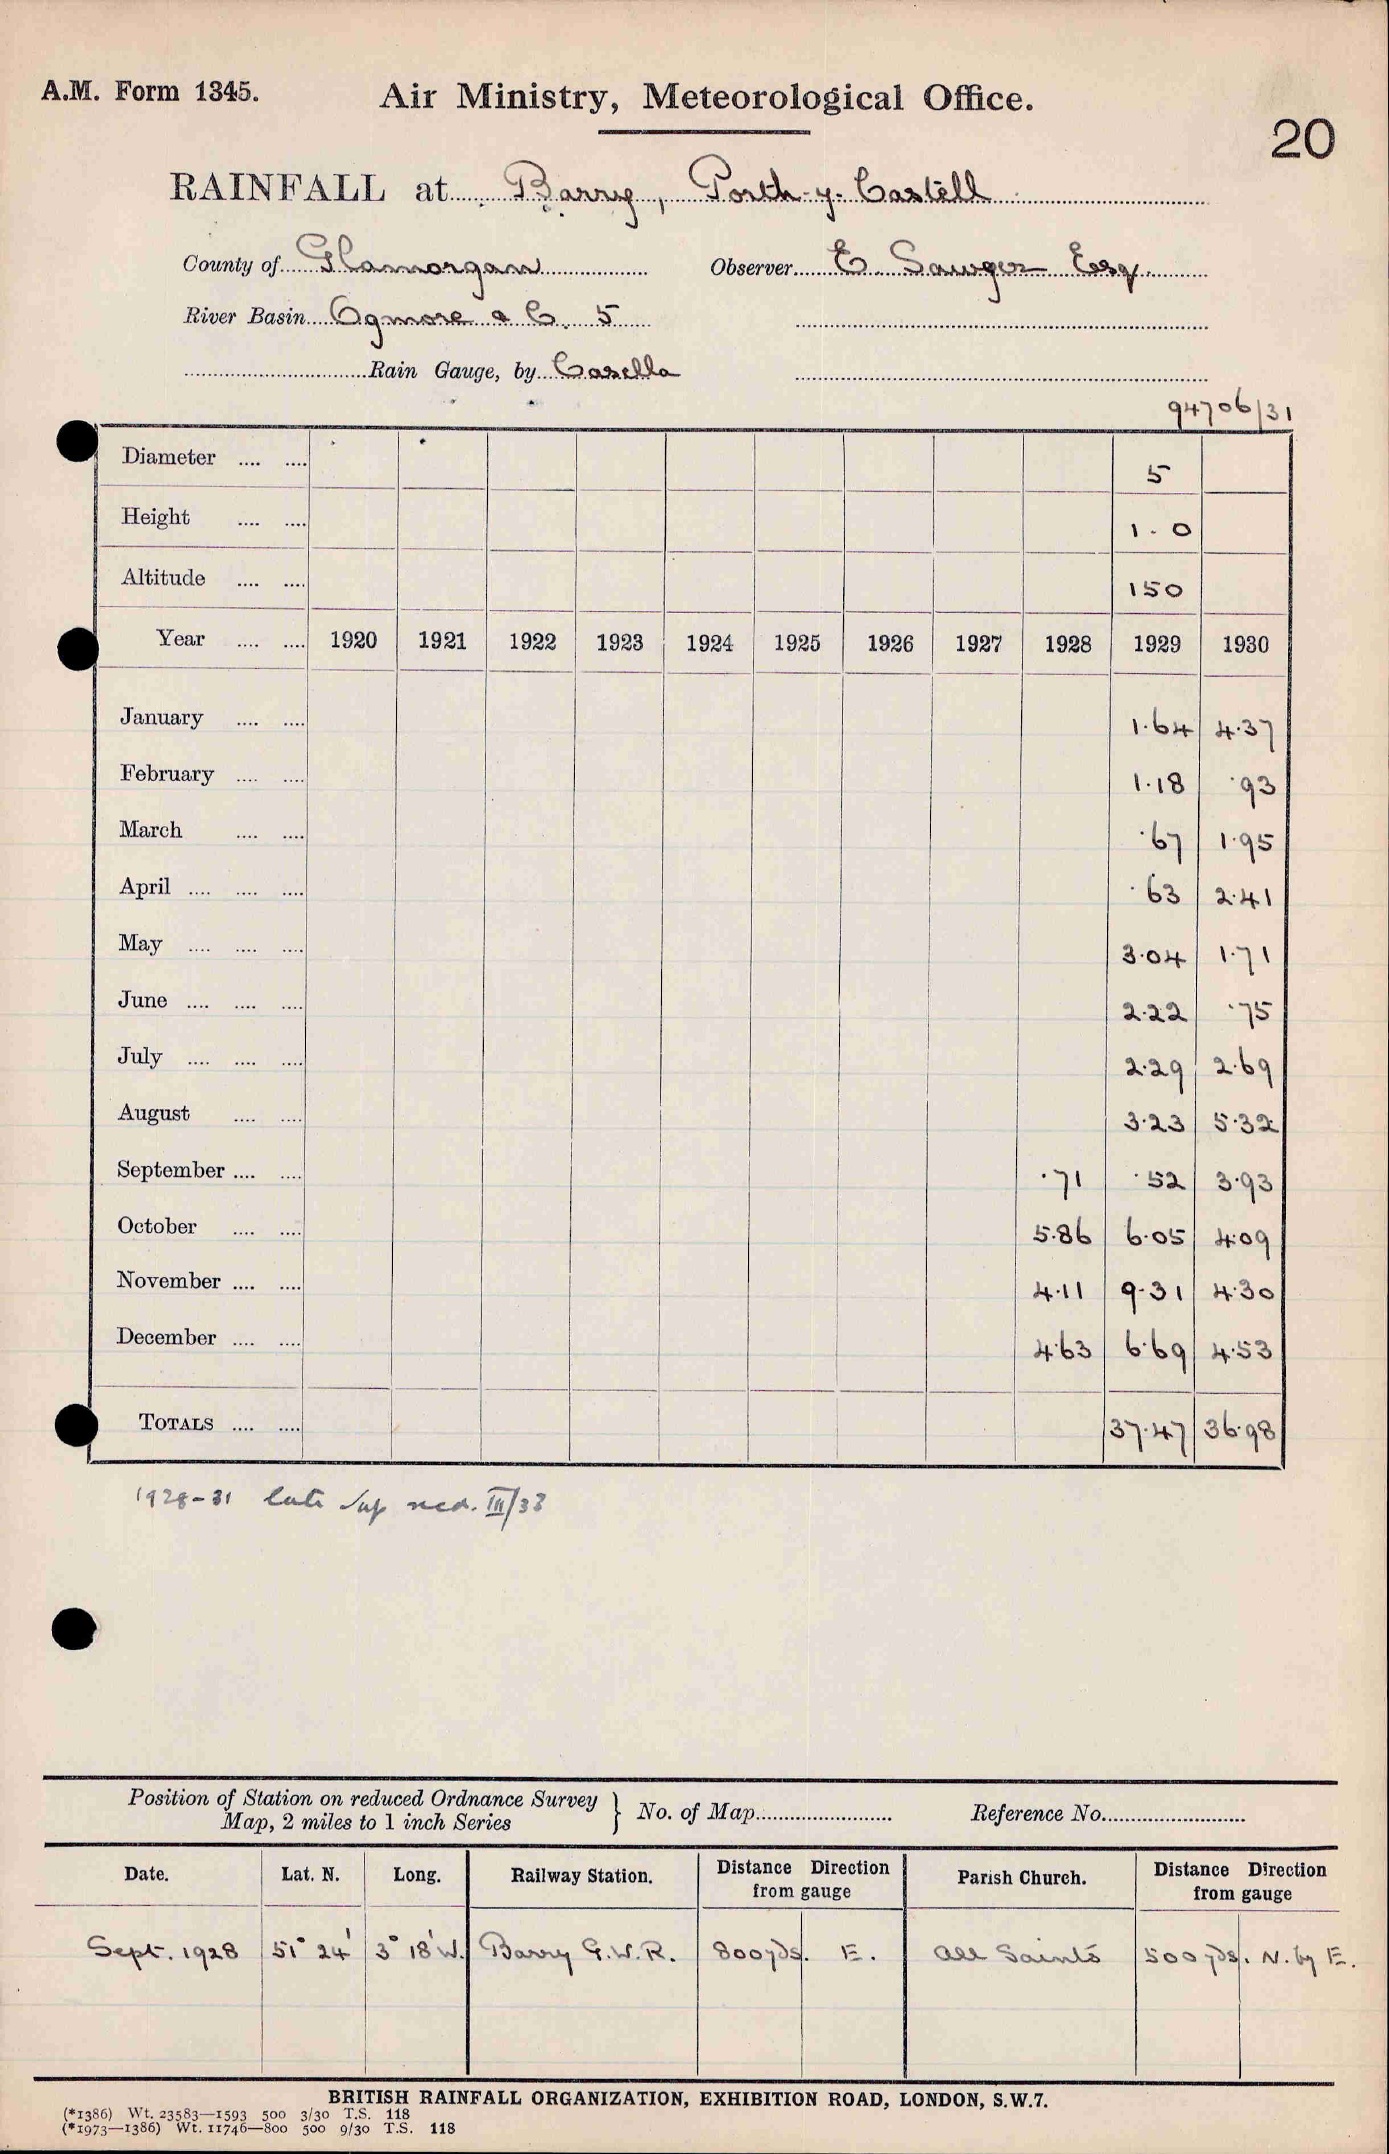 A.M. Form 1345.
Air Ministry, Meteorological Office.
20
RAINFALL at Barry, Porth-y-Castell
County of Glamorgan Observer E. Sawyer Esq.
River Basin Ogmore & C. 5
Rain Gauge, by Casella
94706/31
Diameter .... .... 5
Height .... .... 1.0
Altitude .... .... 150
Year .... .... 1920 1921 1922 1923 1924 1925 1926 1927 1928 1929 1930
January .... .... 1.64 4.37
February .... .... 1.18 .93
March .... .... .67 1.95
April .... .... .... .63 2.41
May .... .... .... 3.04 1.71
June .... .... .... 2.22 .75
July .... .... .... 2.29 2.69
August .... .... 3.23 5.32
September .... .... .71 .52 3.93
October .... .... 5.86 6.05 4.09
November .... .... 4.11 9.31 4.30
December .... .... 4.63 6.69 4.53
TOTALS .... .... 37.47 36.98
1928-31 late sup red. III/33
Position of Station on reduced Ordnance Survey
Map, 2 miles to 1 inch Series } No. of Map Reference No.
Date. Lat. N. Long. Railway Station. Distance Direction from gauge Parish Church. Distance Direction from gauge
Sept. 1928 51° 24' 3° 18' W. Barry G.W.R. 800 yds. E. All Saints 500 yds. N. by E.
BRITISH RAINFALL ORGANIZATION, EXHIBITION ROAD, LONDON, S.W.7.
(*1386) Wt. 23583—1593 500 3/30 T.S. 118
(*1973—1386) Wt. 11746—800 500 9/30 T.S. 118